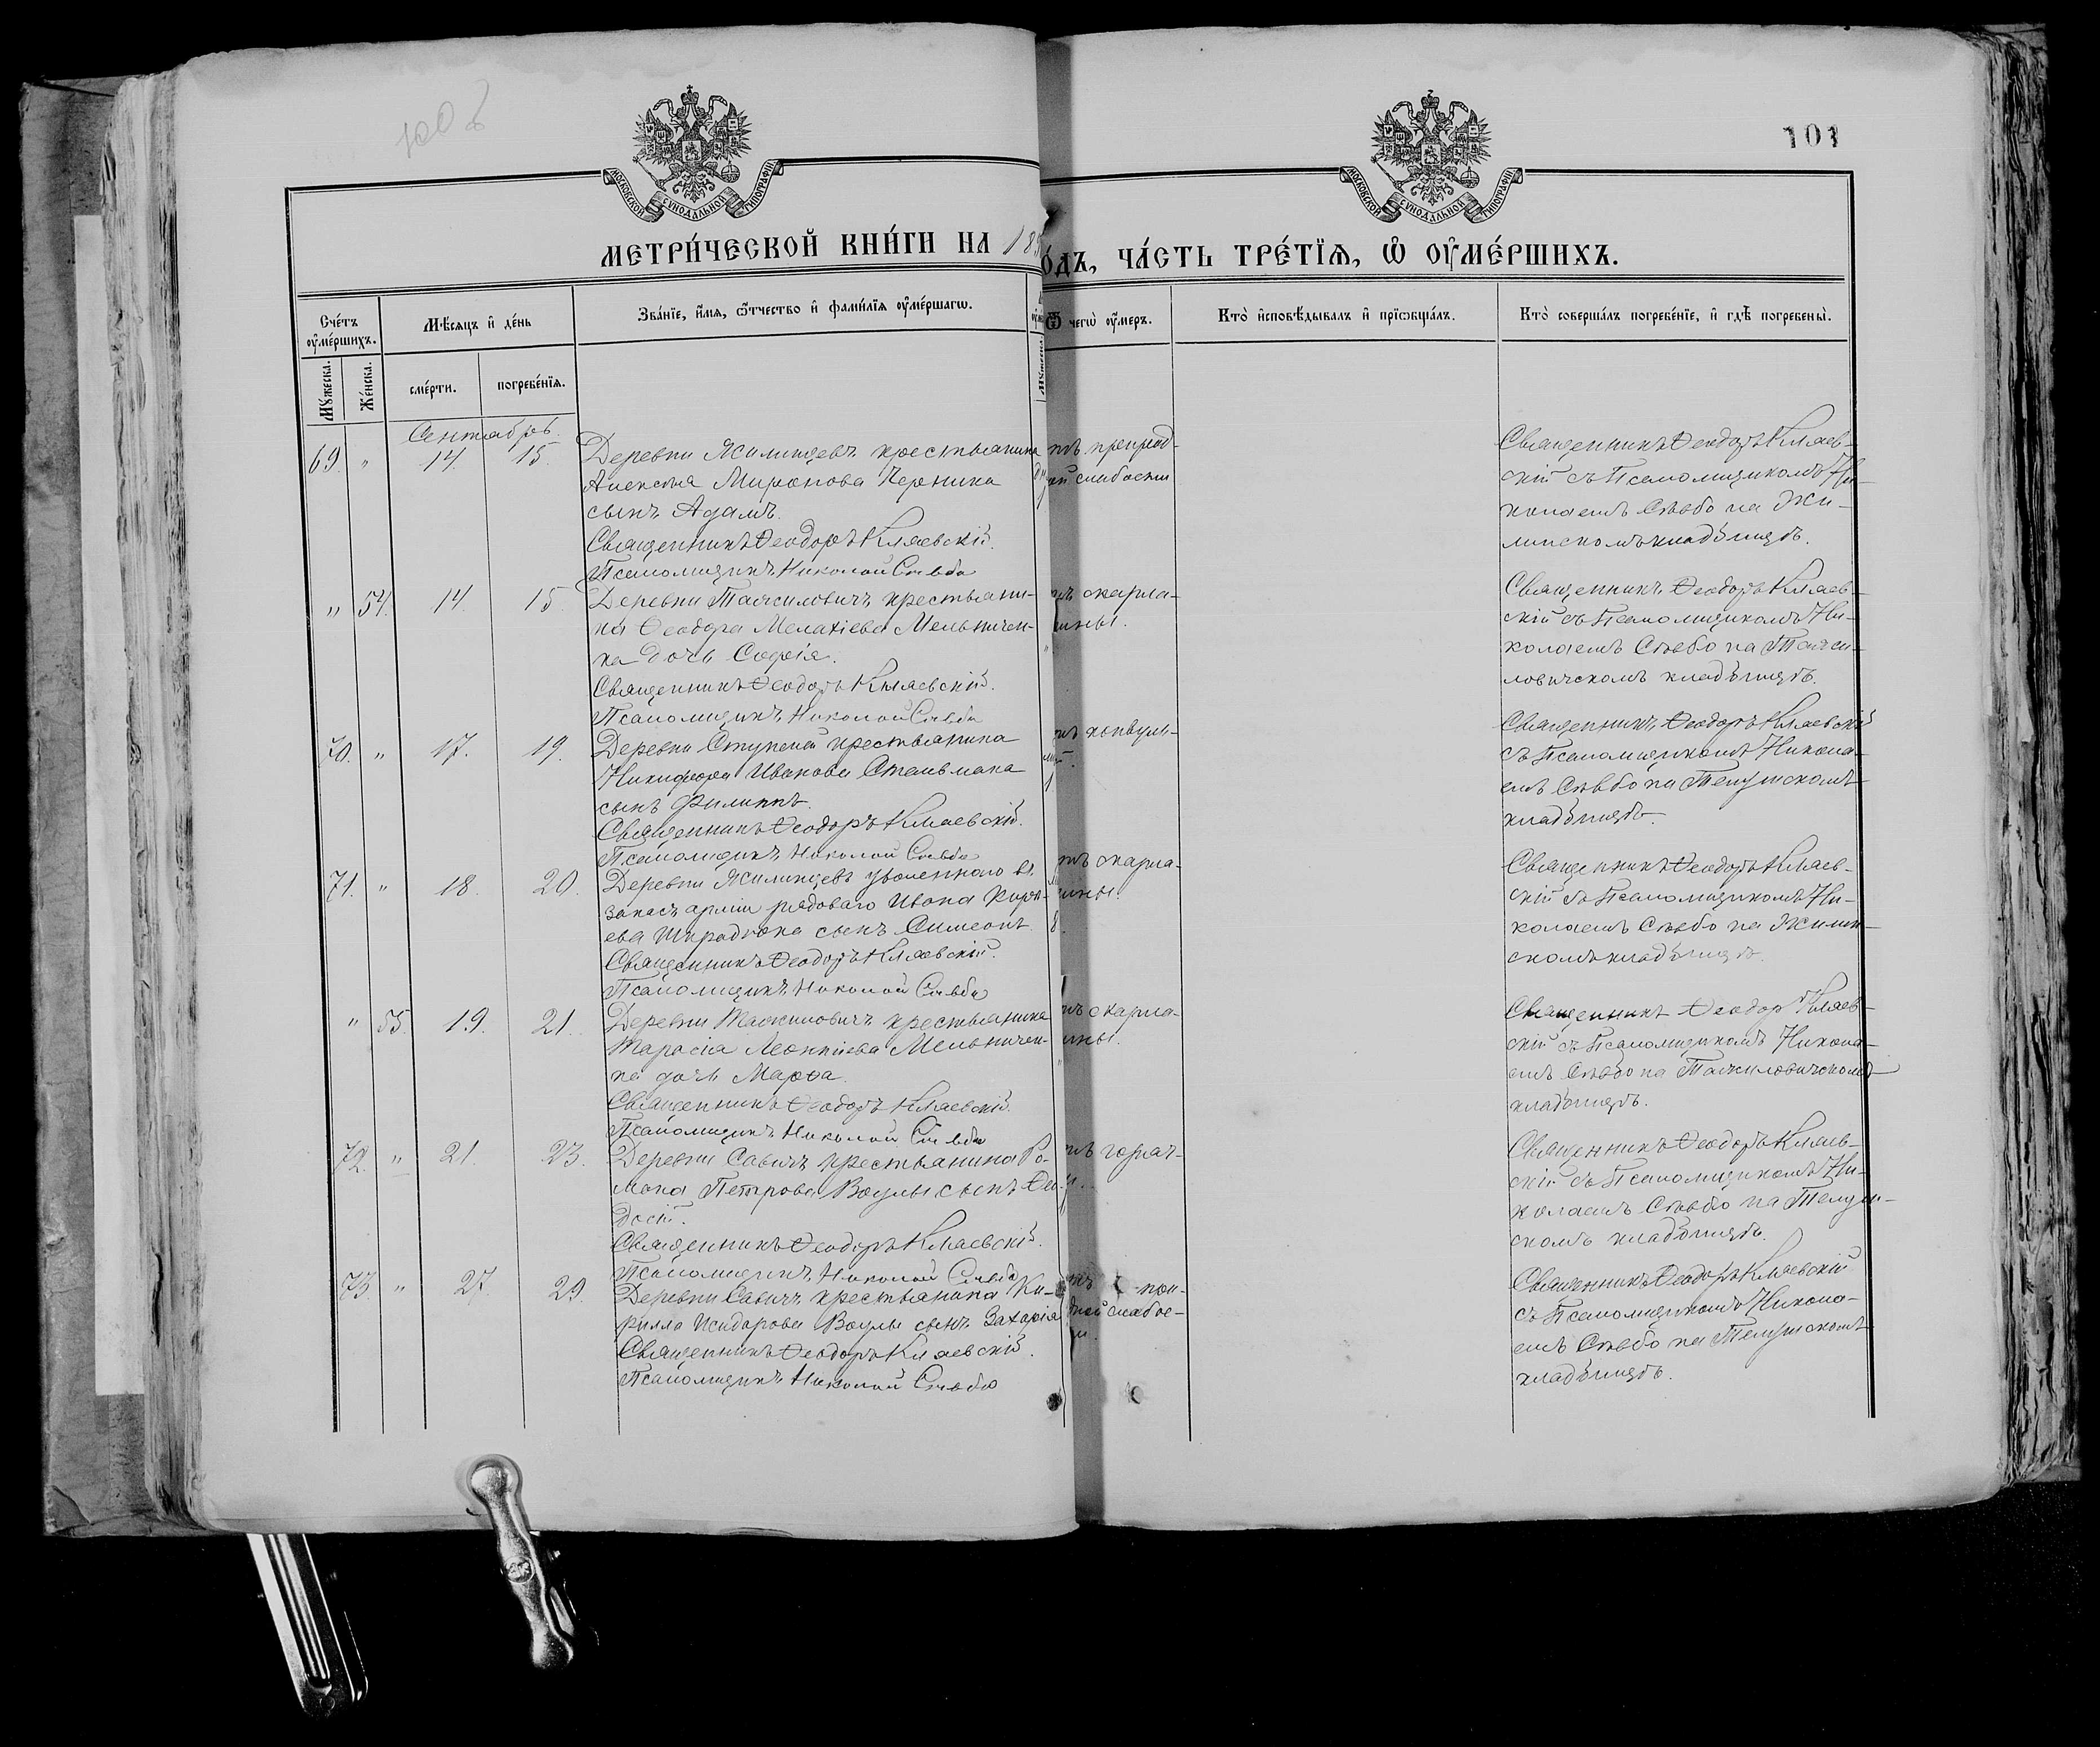 101
МОСКОВСКОЙ СѴНОДАЛЬНОЙ ТИПОГРАФІИ
МОСКОВСКОЙ СѴНОДАЛЬНОЙ ТИПОГРАФІИ
МЕТРИ́ЧЕСКОЙ КНИ́ГИ НА 18
О́ДЪ, ЧА́СТЬ ТРЕ́ТЇѦ, Ѡ҆ ОУ҆МЕ́РШИХЪ.
Сче́тъ оу҆ме́ршихъ.
Мѣ́сѧцъ и҆ де́нь
Зва́нїе, и҆́мѧ, ѻ҆́тчество и҆ фами́лїѧ оу҆ме́ршагѡ.
Ѿ чегѡ̀ оу҆́меръ.
Кто̀ и҆сповѣ́дывалъ и҆ прїѡбща́лъ.
Кто̀ соверша́лъ погребе́нїе, и҆ гдѣ̀ погребены̀.
Мꙋ́жеска.
Же́нска.
сме́рти.
погребе́нїѧ.
Сентябрь
69. " 14. 15.
Деревни Жилинцевъ крестьянина
Алексѣя Миронова Черника
сынъ Адамъ.
Священникъ Ѳеодоръ Кляевскій.
Псаломщикъ Николай Сѣвбо
слабости
Священникъ Ѳеодоръ Кляев-
скій съ Псаломщикомъ Ни-
колаемъ Сѣвбо на Жи-
линскомъ кладбищѣ.
" 54. 14. 15.
Деревни Тажиловичъ крестьяни-
на Ѳеодора Малахіева Мельничен-
ка дочь Софія.
Священникъ Ѳеодоръ Кляевскій.
Псаломщикъ Николай Сѣвбо
скарла-
ины.
Священникъ Ѳеодоръ Кляев-
скій съ Псаломщикомъ Ни-
колаемъ Сѣвбо на Тажи-
ловичскомъ кладбищѣ.
70. " 17. 19.
Деревни Ступеней крестьянина
Никифора Иванова Стельмака
сынъ Филиппъ.
Священникъ Ѳеодоръ Кляевскій.
Псаломщикъ Николай Сѣвбо
конвуль-
Священникъ Ѳеодоръ Кляевскій
съ Псаломщикомъ Никола-
емъ Сѣвбо на Телушскомъ
кладбищѣ.
71. " 18. 20.
Деревни Жилинцевъ уволеннаго въ
запасъ арміи рядоваго Ивана
сынъ Симеонъ.
Священникъ Ѳеодоръ Кляевскій.
Псаломщикъ Николай Сѣвбо
скарла-
ины.
Священникъ Ѳеодоръ Кляев-
скій съ Псаломщикомъ Ни-
колаемъ Сѣвбо на Жилин-
скомъ кладбищѣ.
" 55. 19. 21.
Деревни Тажиловичъ крестьянина
Тарасія Леонтіева Мельничен-
ка дочь Марѳа.
Священникъ Ѳеодоръ Кляевскій.
Псаломщикъ Николай Сѣвбо
скарла-
ины.
Священникъ Ѳеодор Кляев-
скій съ Псаломщикомъ Никола-
емъ Сѣвбо на Тажиловичскомъ
кладбищѣ.
72. " 21. 23.
Деревни Савичъ крестьянина Ро-
мана Петрова Ваулы сынъ Ѳео-
досій.
Священникъ Ѳеодоръ Кляевскій.
Псаломщикъ Николай Сѣвбо
горяч-
Священникъ Ѳеодоръ Кляев-
скій съ Псаломщикомъ Ни-
колаемъ Сѣвбо на Телуш-
скомъ кладбищѣ.
73. " 27. 29.
Деревни Савичъ крестьянина Ки-
рилла Исидорова Ваулы сынъ Захарія
Священникъ Ѳеодоръ Кляевскій.
Псаломщикъ Николай Сѣвбо
слабос-
Священникъ Ѳеодоръ Кляевскій
съ Псаломщикомъ Никола-
емъ Сѣвбо на Телушскомъ
кладбищѣ.